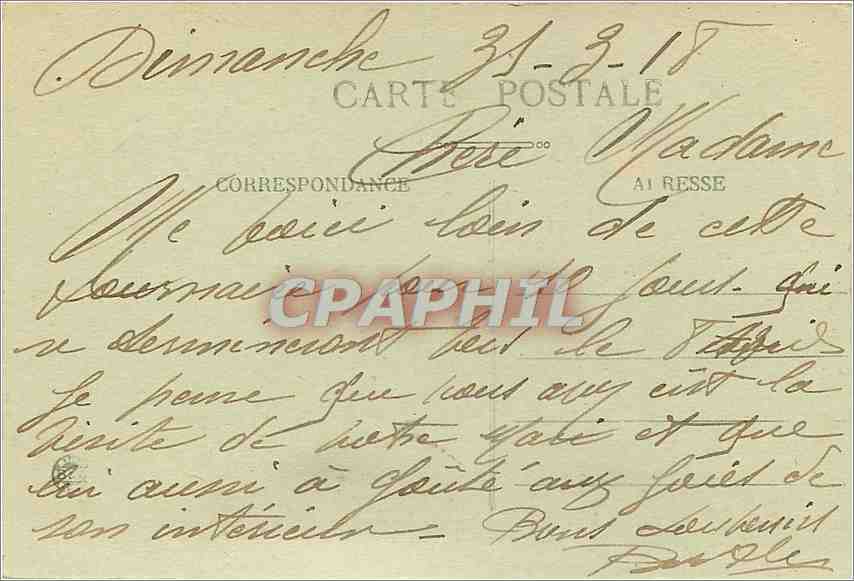 Dimanche 31-3-18
CARTE POSTALE
Chère Madame
CORRESPONDANCE
ADRESSE
Me voici loin de cette
fournaise pour 10 jours. qui
se termineront le 8
CPAPHIL
Je pense que vous avez eut la
visite de votre Mari et que
lui aussi à goûté aux joies de
son intérieur - Bons souvenirs